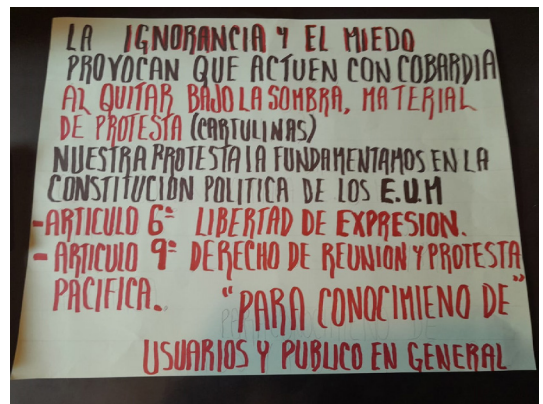 LA IGNORANCIA Y EL MIEDO
PROVOCAN QUE ACTUEN CON COBARDIA
AL QUITAR BAJO LA SOMBRA, MATERIAL
DE PROTESTA (CARTULINAS)
NUESTRA PROTESTA LA FUNDAMENTAMOS EN LA
CONSTITUCIÓN POLITICA DE LOS E.U.M
-ARTICULO 6º LIBERTAD DE EXPRESION.
- ARTICULO 9º DERECHO DE REUNION Y PROTESTA
PACIFICA. "PARA CONOCIMIENO DE"
USUARIOS Y PUBLICO EN GENERAL